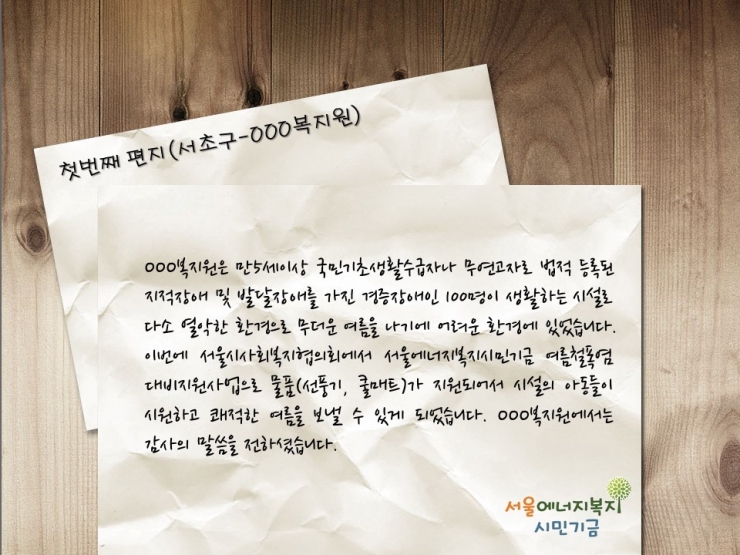 첫번째 편지(서초구-OOO복지원)
OOO복지원은 만5세이상 국민기초생활수급자나 무연고자로 법적 등록된
지적장애 및 발달장애를 가진 경증장애인 100명이 생활하는 시설로
다소 열악한 환경으로 무더운 여름을 나기에 어려운 환경에 있었습니다.
이번에 서울시사회복지협의회에서 서울에너지복지시민기금 여름철폭염
대비지원사업으로 물품(선풍기, 쿨매트)가 지원되어서 시설의 아동들이
시원하고 쾌적한 여름을 보낼 수 있게 되었습니다. OOO복지원에서는
감사의 말씀을 전하셨습니다.
서울에너지복지
시민기금